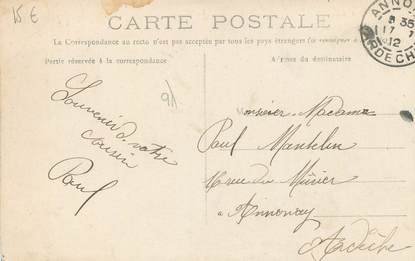 15 €
CARTE POSTALE
La Correspondance au recto n'est pas acceptée par tous les pays étrangers (se renseigner
Partie réservée à la correspondance
Adresse du destinataire
ANNO
8 35
17 1
12
ARDECHE
Souvenir de votre
cousin
Paul
Monsieur Madame
Paul Mantelin
rue du Mûrier
à Annonay
Ardèche